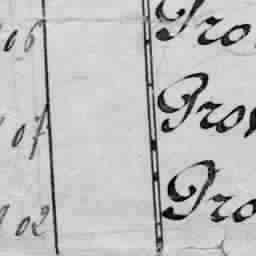 06 Pro
07 Prov
02 Pro